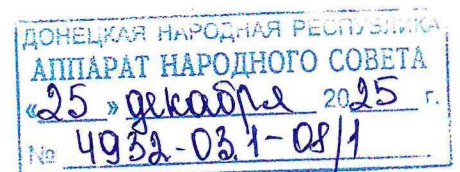 ДОНЕЦКАЯ НАРОДНАЯ РЕСПУБЛИКА
АППАРАТ НАРОДНОГО СОВЕТА
«25» декабря 2025 г.
№ 4932-03.1-08/1